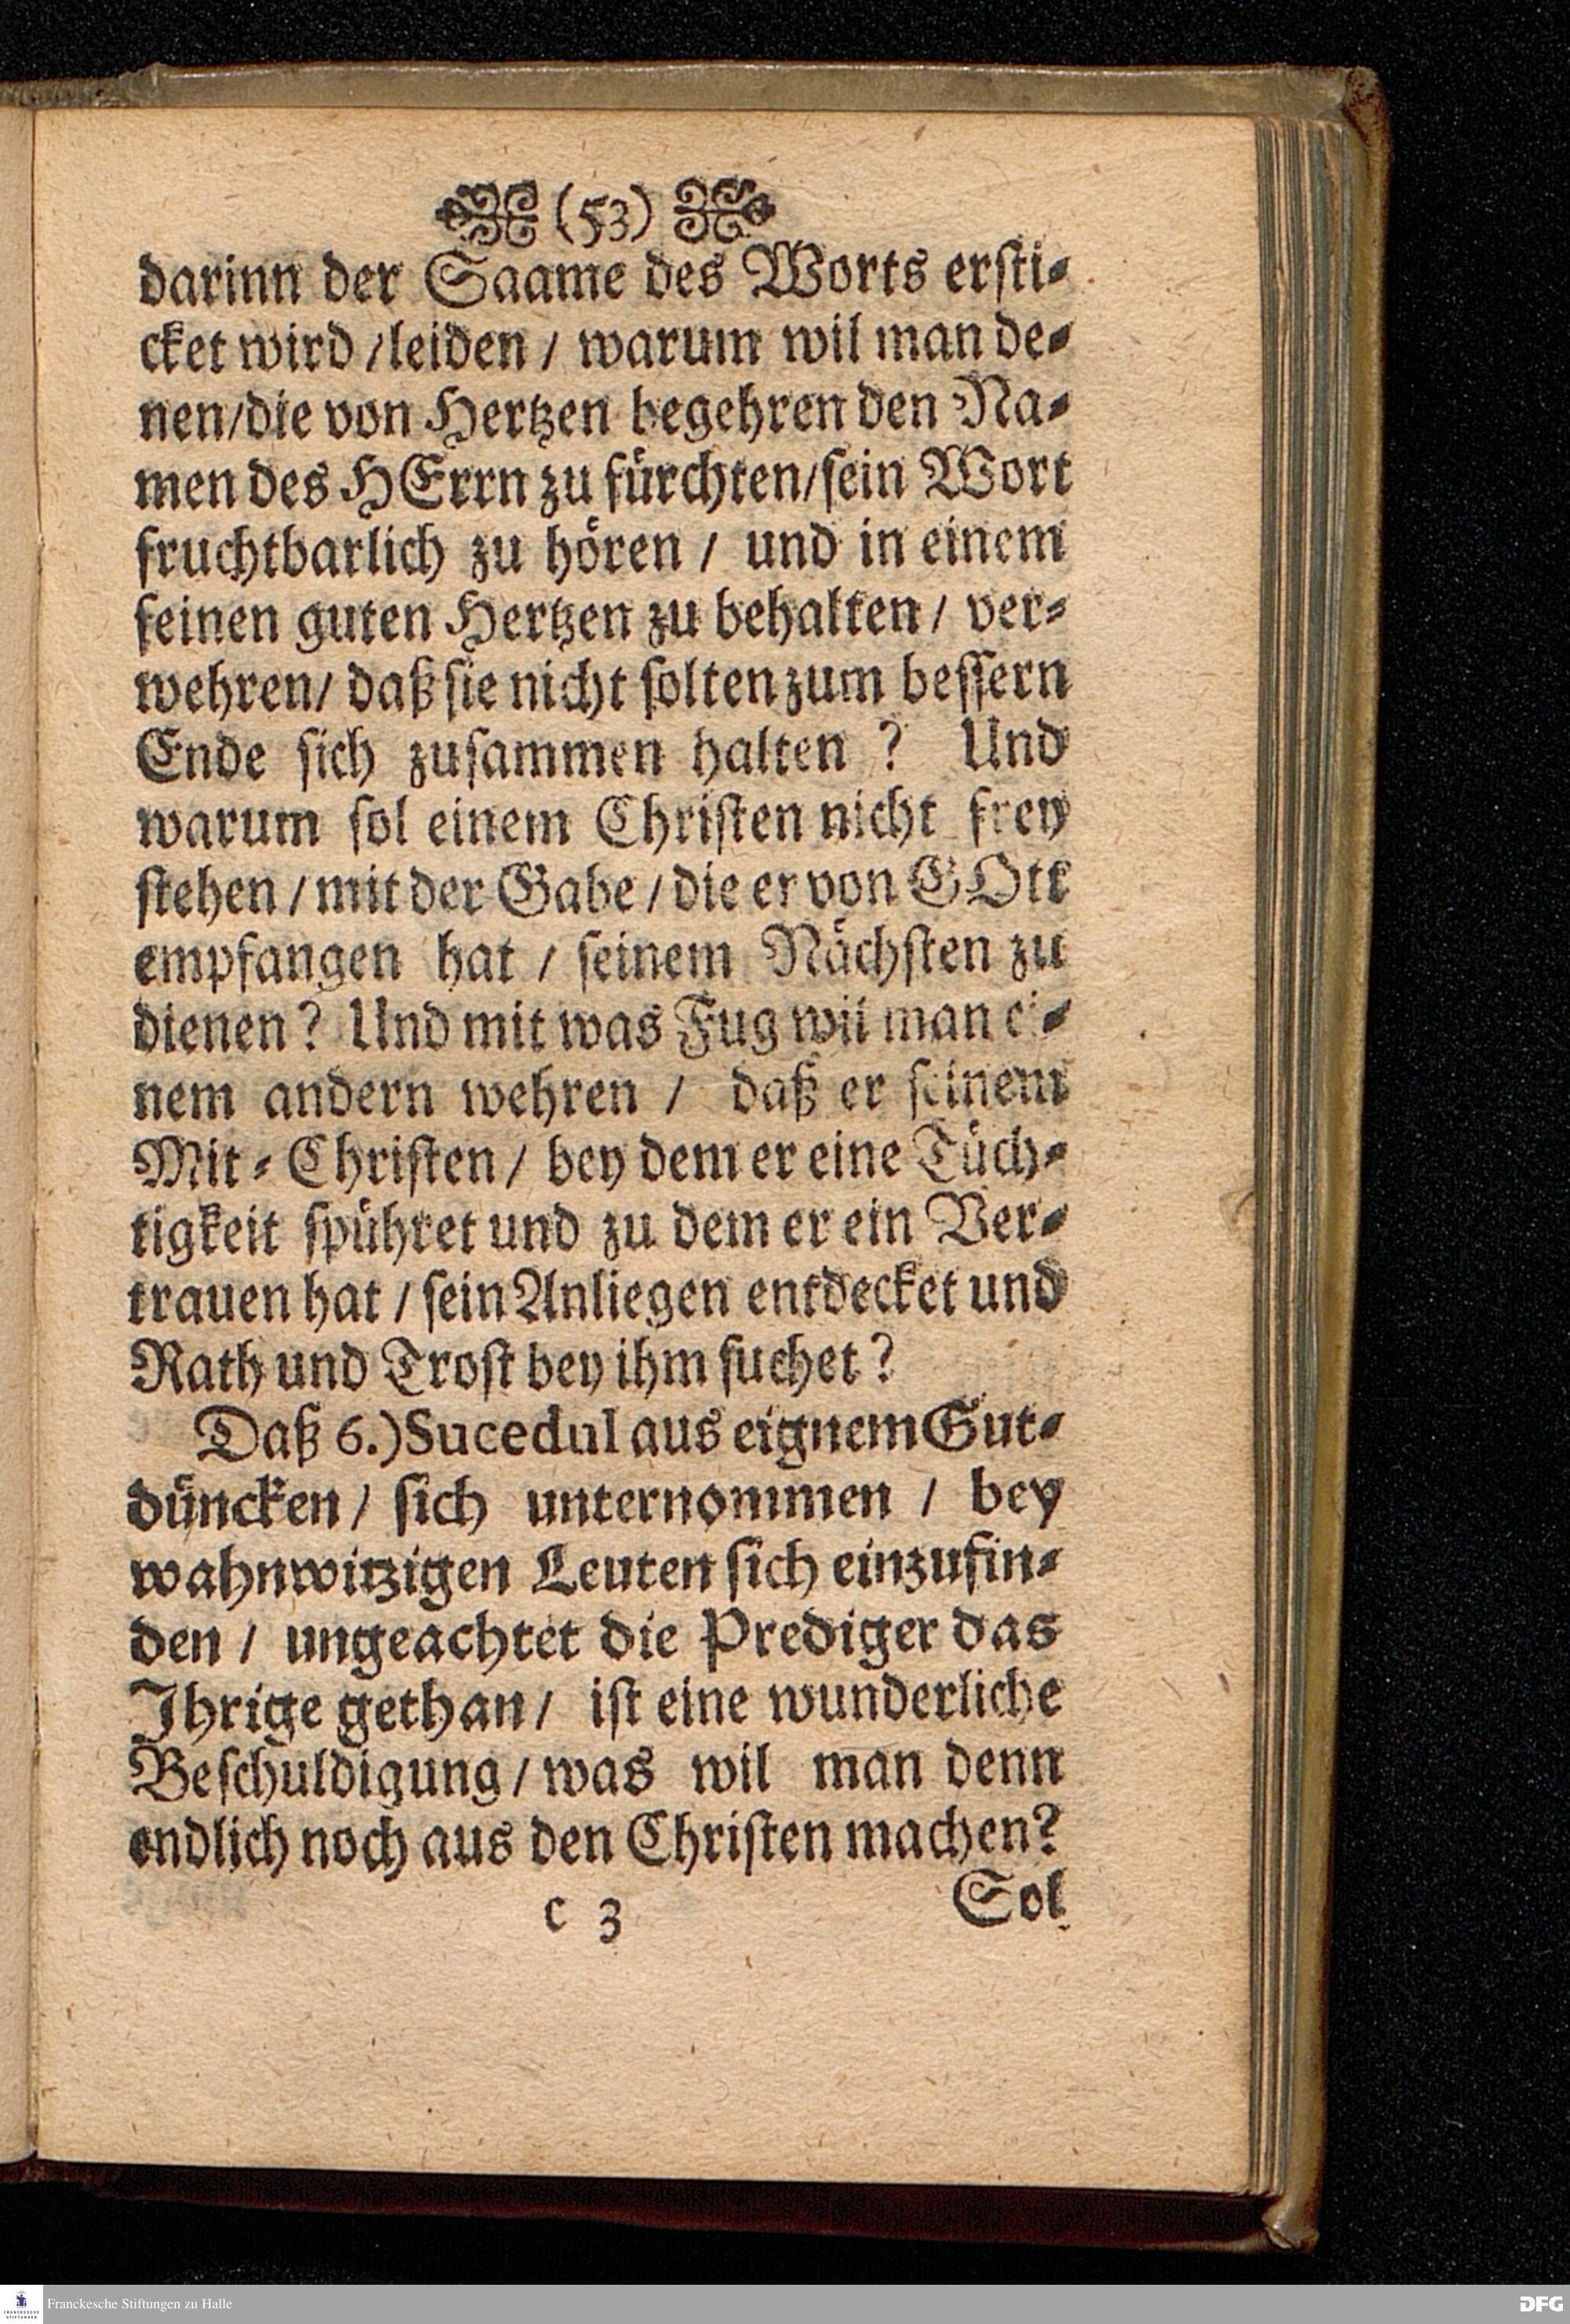 (53)
darinn der Saame des Worts ersti-
cket wird / leiden / warum wil man de-
nen/die von Hertzen begehren den Na-
men des HErrn zu fürchten/sein Wort
fruchtbarlich zu hören / und in einem
feinen guten Hertzen zu behalten / ver-
wehren/ daß sie nicht solten zum bessern
Ende sich zusammen halten ? Und
warum sol einem Christen nicht frey
stehen / mit der Gabe / die er von GOtt
empfangen hat / seinem Nächsten zu
dienen? Und mit was Fug wil man ei-
nem andern wehren / daß er seinem
Mit-Christen / bey dem er eine Tüch-
tigkeit spühret und zu dem er ein Ver-
trauen hat / sein Anliegen entdecket und
Rath und Trost bey ihm suchet?
Daß 6.) Sucedul aus eignem Gut-
düncken/ sich unternommen / bey
wahnwitzigen Leuten sich einzufin-
den / ungeachtet die Prediger das
Ihrige gethan / ist eine wunderliche
Beschuldigung / was wil man denn
endlich noch aus den Christen machen?
c 3 Sol
Franckesche Stiftungen zu Halle
FRANCKESCHE STIFTUNGEN
DFG